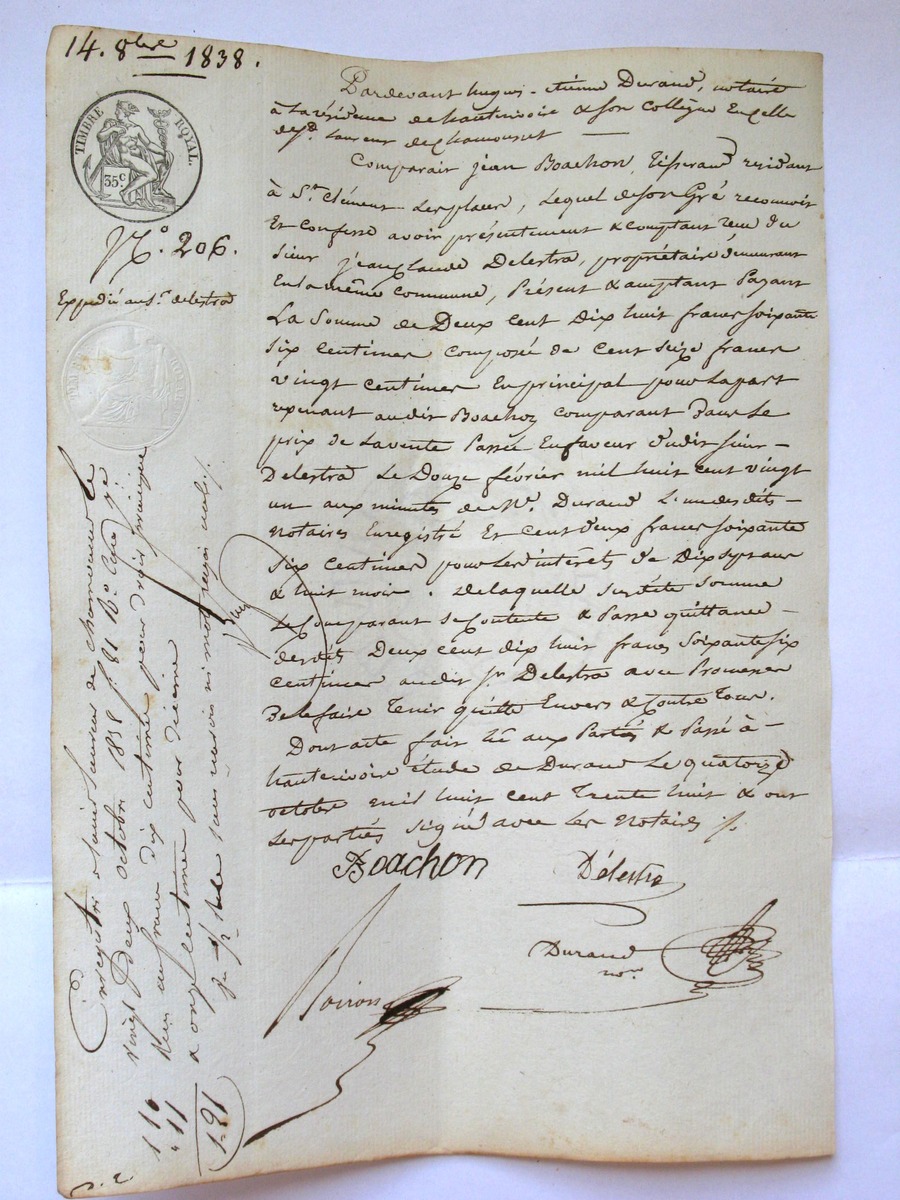 14. 8bre 1838.
TIMBRE ROYAL.
35c
N.o 206.
Expédié au Sr. delestra
Pardevant hugues-étienne Durand, notaire
à la résidence de hauterivoire & son collègue En celle
de St. Laurent de chamousset
Comparait jean Boachon, Tisserand résidant
à St. Clément-les places, Lequel de son Gré reconnoit
Et confesse avoir présentement & comptant reçu du
sieur jean claude Delestra, propriétaire demeurant
En la même commune, Présent & acceptant Payant
La Somme de Deux cent Dix huit francs soixante
six centimes composée de cent seize francs
vingt centimes En principal pour la part
revenant audit Boachon comparant Dans le
prix de la vente Passée En faveur dudit sieur
Delestra Le Douze février mil huit cent vingt
un aux minutes de Me. Durand L'un des dits
notaires Enregistré Et cent deux francs soixante
six centimes pour les intérêts de Dix sept ans
& huit mois. De laquelle susdite somme
Le Comparant se Contente & Passe quittance
desdits Deux cent dix huit francs soixante six
centimes audit Sr. Delestra avec Promesse
De le faire Tenir quitte Envers & Contre Tous.
Dont acte fait lu aux Parties & Passé à
hauterivoire étude de Durand Le quatorze
octobre mil huit cent Trente huit & ont
Les parties signé avec les notaires ./.
Boachon
Délestra
Durand
nore
Boiron
Enregistré à saint Laurent de chamousset le
vingt Deux octobre 1838 fo. 81 Ro. Case
Reçu un franc dix centimes pour droit principal
& onze centimes pour dixième
1 10
" 11
1-21